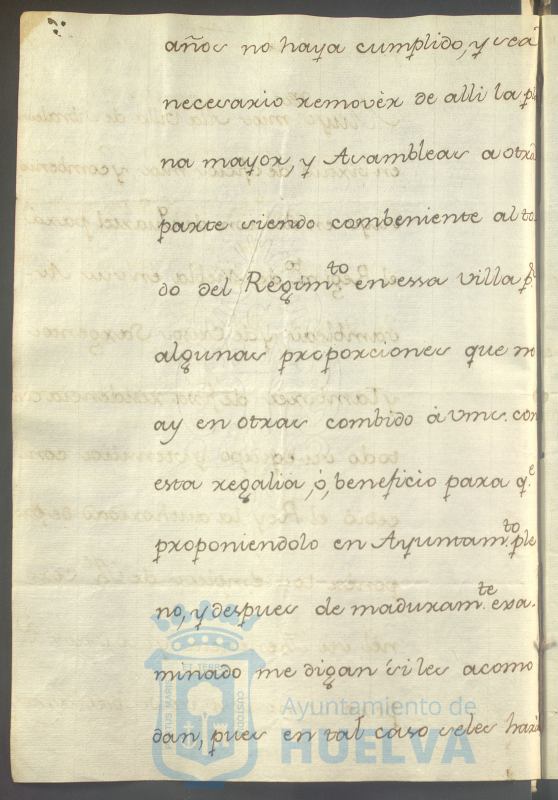 años no haya cumplido, y sea
necesario removèr de alli la pla
na mayor, y Asambleas a otra
parte siendo combeniente al to
do del Regim.to en essa villa p.r
algunas proporciones que no
ay en otras combido à vms. con
esta regalia, ó, beneficio para q.e
proponiendolo en Ayuntam.to ple
no, y despues de maduram.te exa
minado me digan si les acomo
dan, pues en tal caso seles hará
Ayuntamiento de
HUELVA